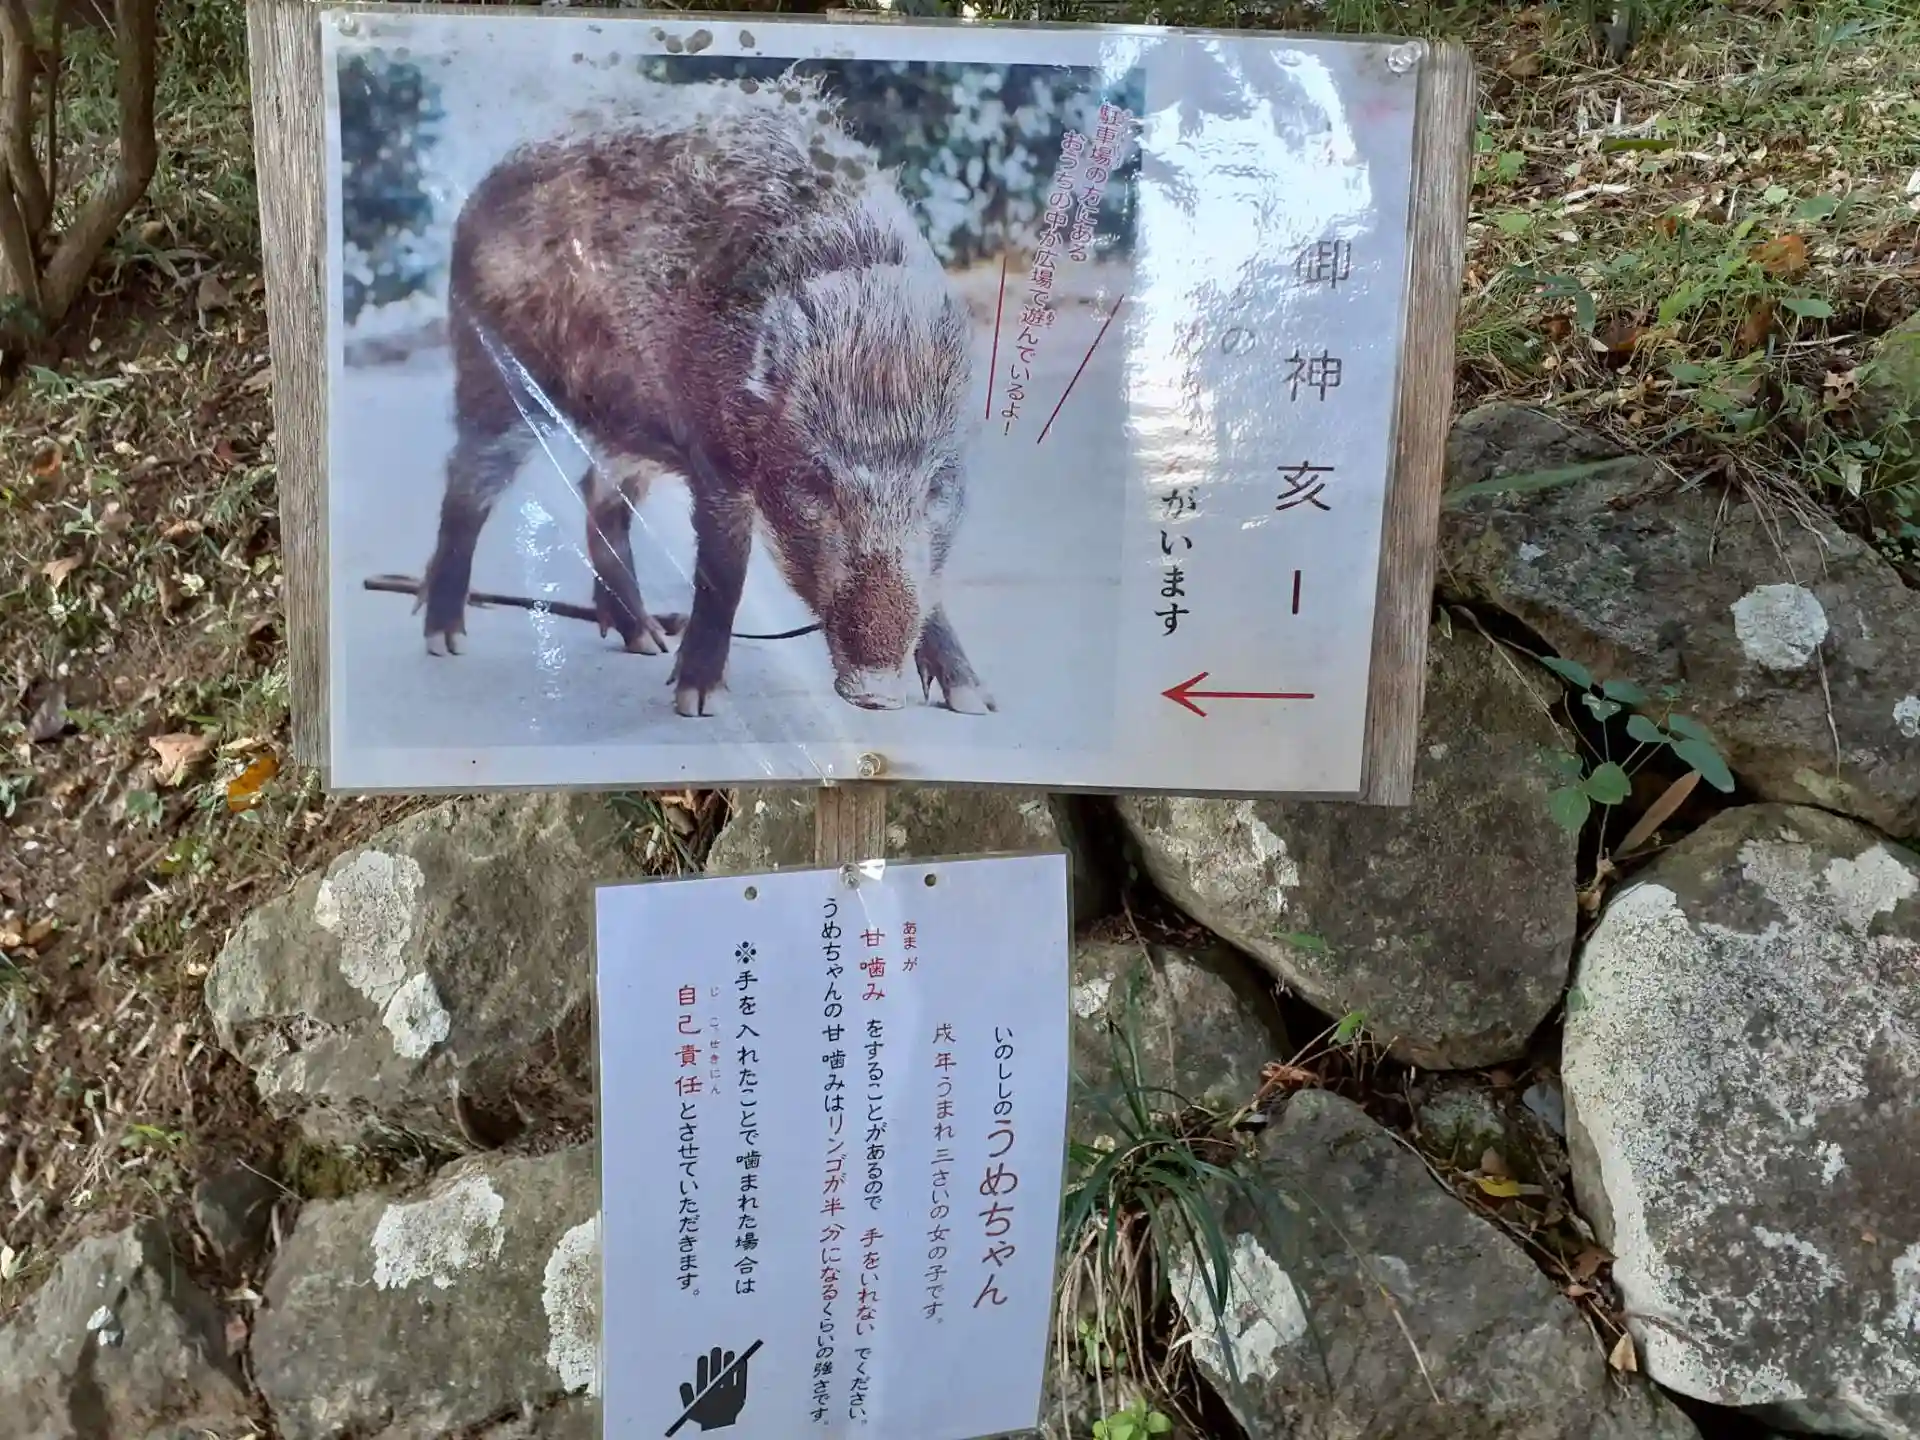 御神亥ー
の
んがいます
駐車場の方にある
おうちの中か広場で遊んでいるよ！
いのししのうめちゃん
戌年うまれ三さいの女の子です。
あまが
甘噛みをすることがあるので手をいれないでください。
うめちゃんの甘噛みはリンゴが半分になるくらいの強さです。
※手を入れたことで噛まれた場合は
じこせきにん
自己責任とさせていただきます。